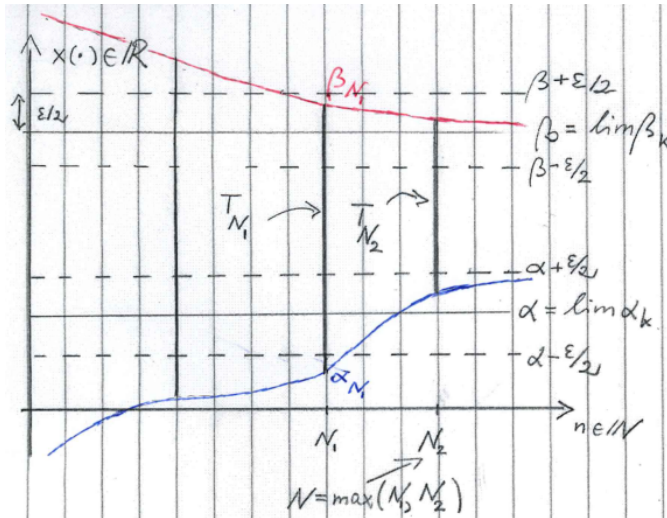 x(·) ∈ ℝ
β_{N_1}
β+ε/2
ε/2
β = lim β_k
β-ε/2
T_{N_1}
T_{N_2}
α+ε/2
α = lim α_k
α-ε/2
α_{N_1}
n ∈ ℕ
N_1
N_2
N = max(N_1, N_2)